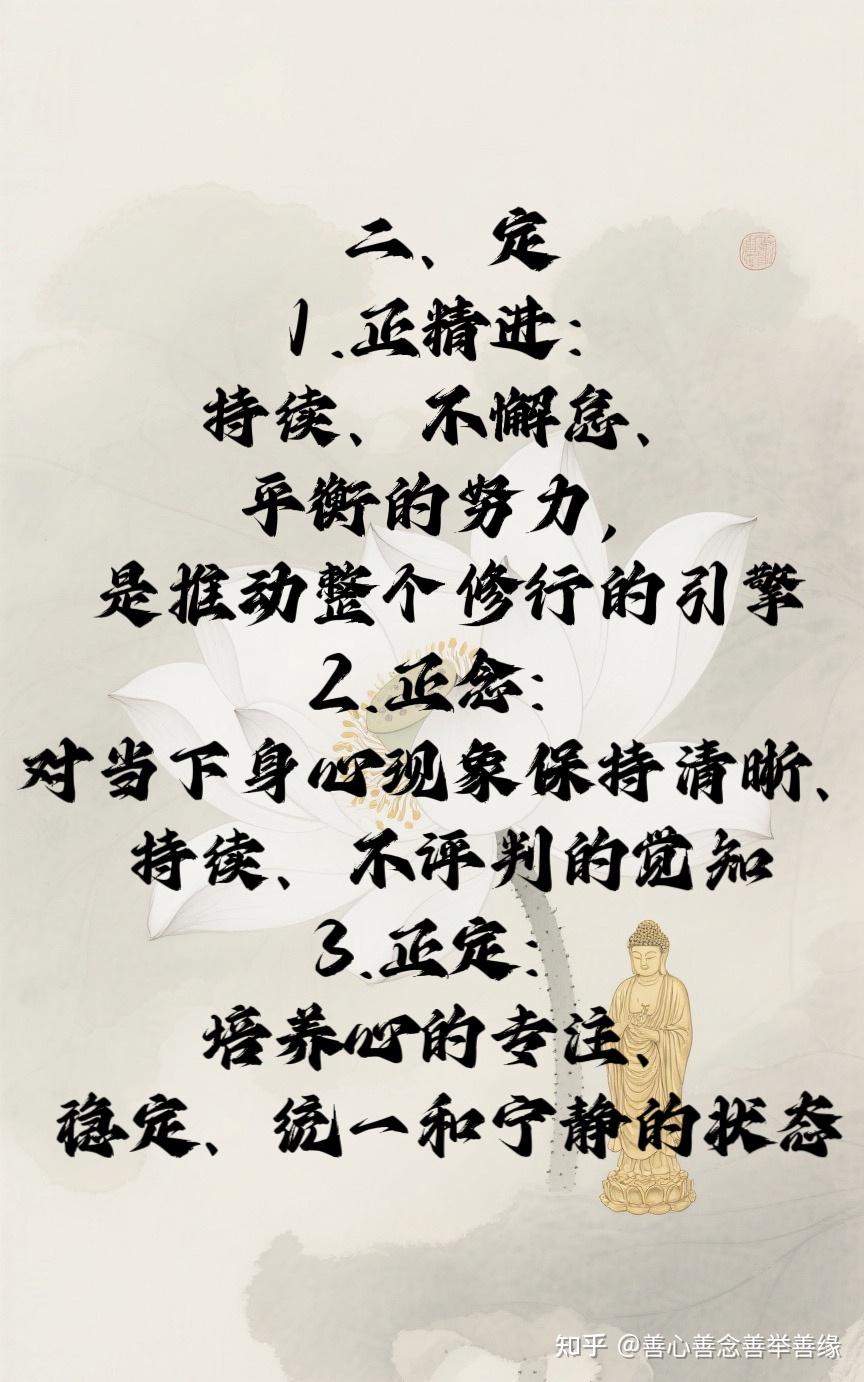 二、定
1.正精进：
持续、不懈怠、
平衡的努力，
是推动整个修行的引擎
2.正念：
对当下身心现象保持清晰、
持续、不评判的觉知
3.正定：
培养心的专注、
稳定、统一和宁静的状态
知乎 @善心善念善举善缘